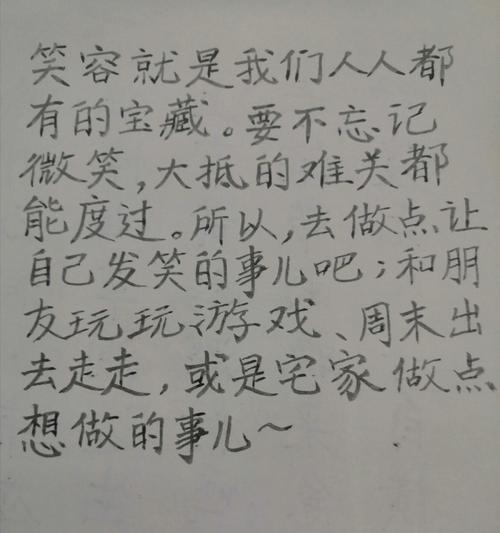 笑容就是我们人人都
有的宝藏。要不忘记
微笑,大抵的难关都
能度过。所以,去做点让
自己发笑的事儿吧;和朋
友玩玩游戏、周末出
去走走,或是宅家做点
想做的事儿~